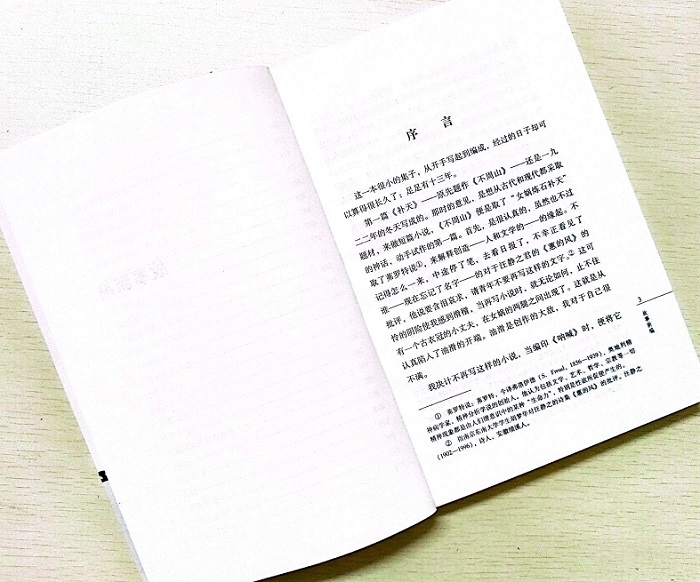 序 言
这一本很小的集子，从开手写起到编成，经过的日子却可
以算得很长久了：足足有十三年。
第一篇《补天》——原先题作《不周山》——还是一九
二二年的冬天写成的。那时的意见，是想从古代和现代都采取
题材，来做短篇小说，《不周山》便是取了“女娲炼石补天”
的神话，动手试作的第一篇。首先，是很认真的，虽然也不过
取了茀罗特说①，来解释创造——人和文学的——的缘起。不
记得怎么一来，中途停了笔，去看日报了，不幸正看见了
谁——现在忘记了名字——的对于汪静之君的《蕙的风》的
批评，他说要含泪哀求，请青年不要再写这样的文字。②这可
怜的阴险使我感到滑稽，当再写小说时，就无论如何，止不住
有一个古衣冠的小丈夫，在女娲的两腿之间出现了。这就是从
认真陷入了油滑的开端。油滑是创作的大敌，我对于自己很
不满。
我决计不再写这样的小说，当编印《呐喊》时，便将它
① 茀罗特说：茀罗特，今译弗洛伊德（S. Freud，1856—1939），奥地利精
神病学家，精神分析学说的创始人。他认为包括文学、艺术、哲学、宗教等一切
精神现象都是由人们潜意识中的某种“生命力”，特别是性欲所促使产生的。
② 指南京东南大学学生胡梦华对汪静之的诗集《蕙的风》的批评。汪静之
（1902—1996），诗人，安徽绩溪人。
3
故事新编